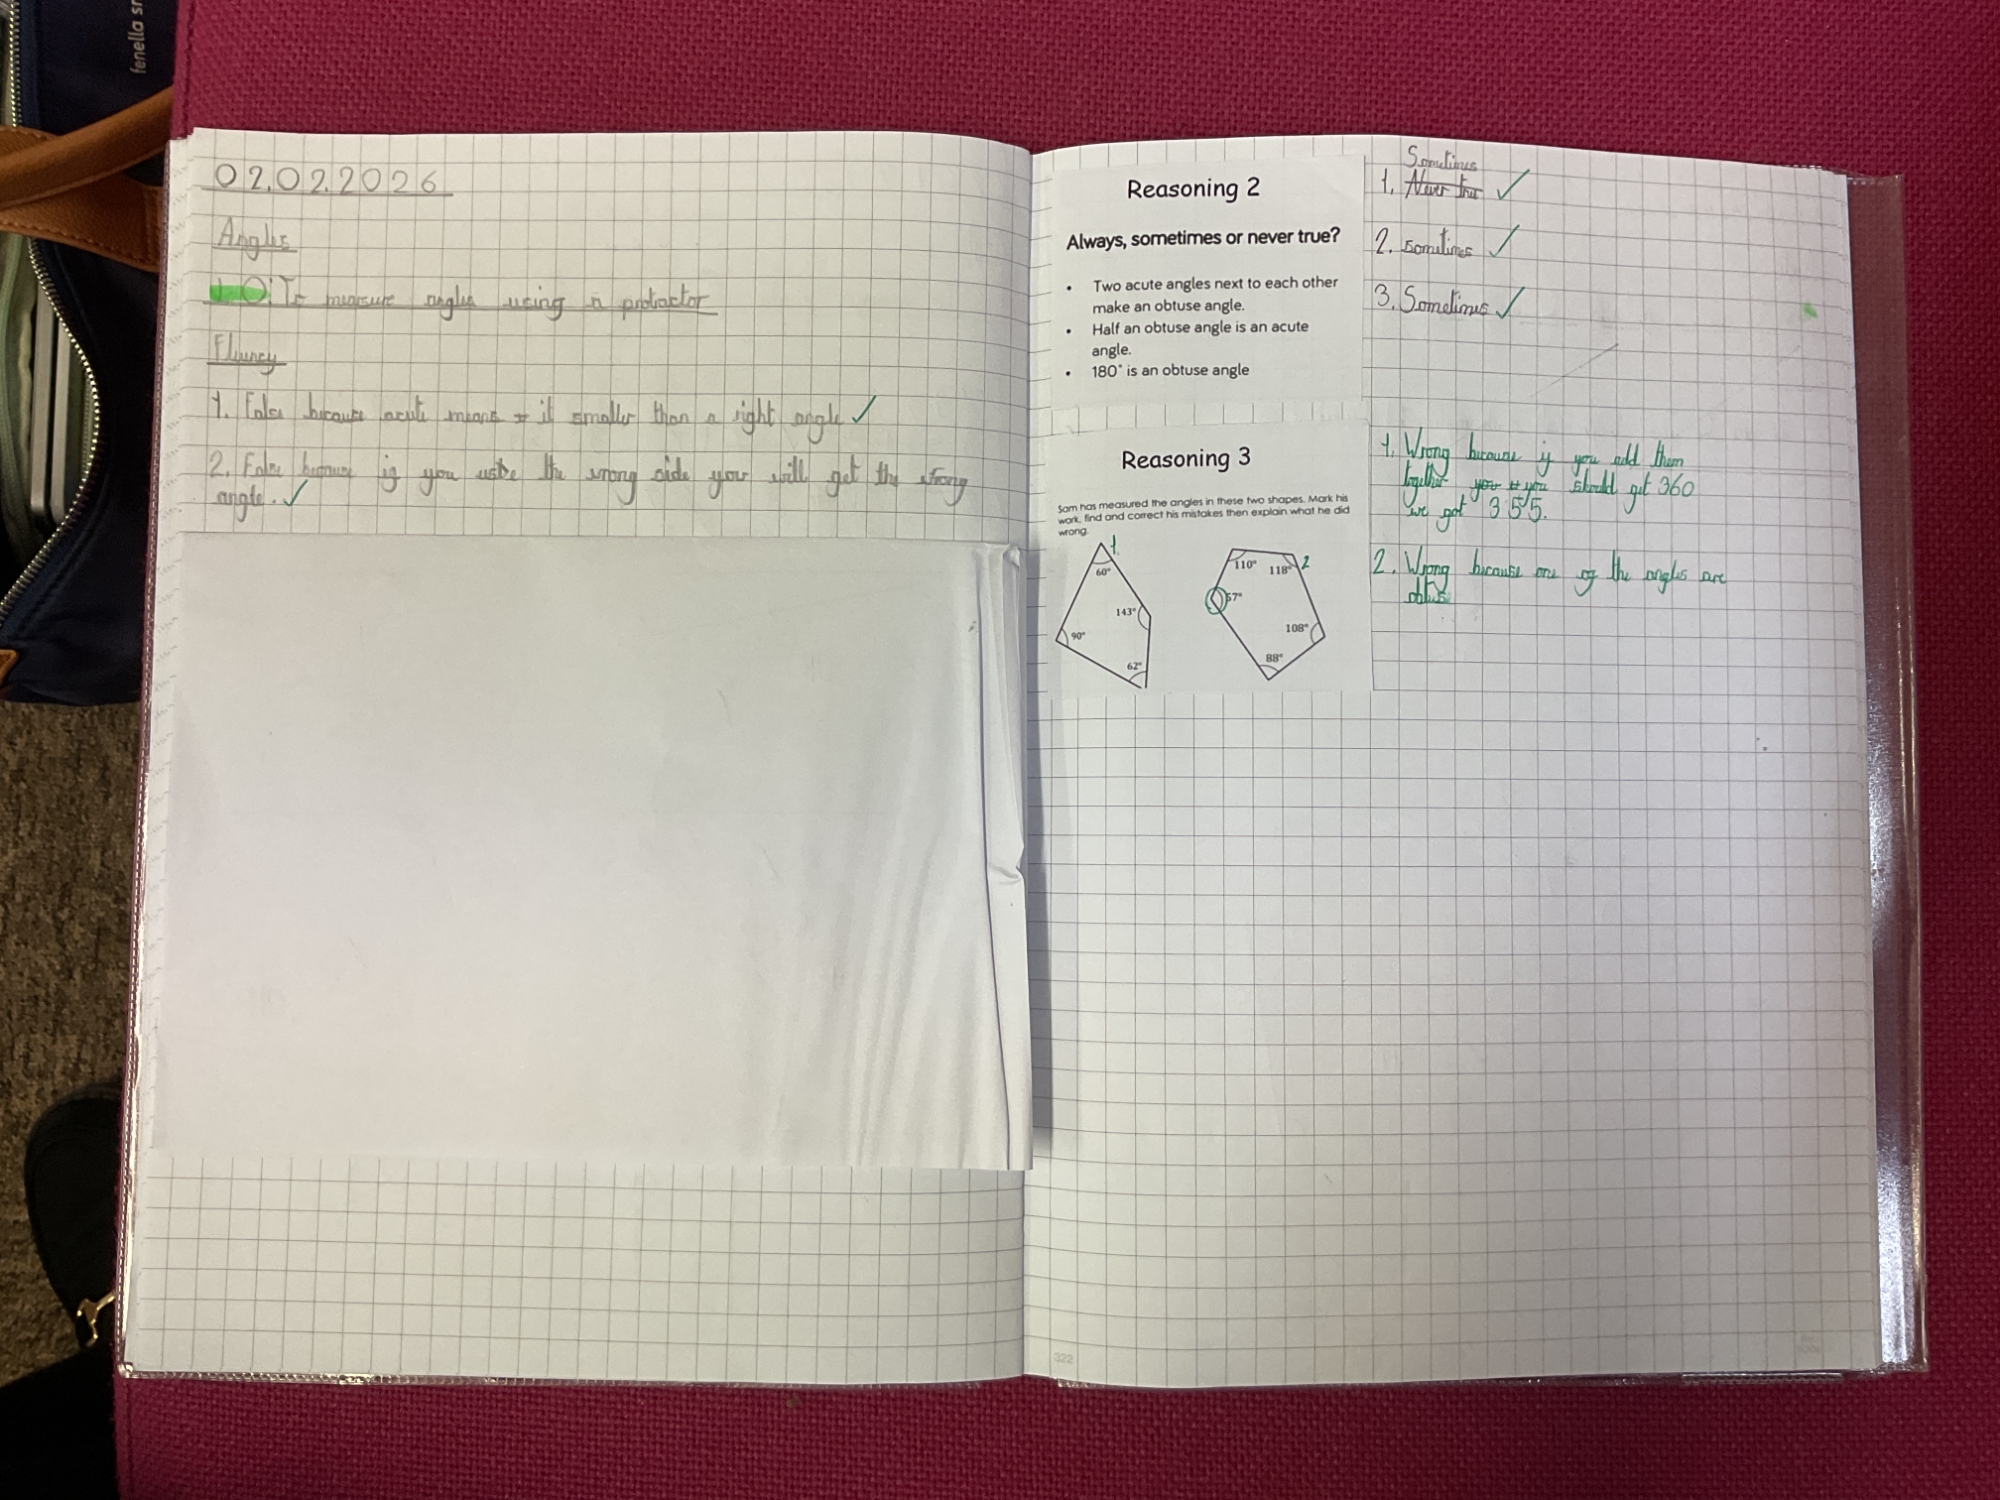 fenella sm
02.02.2026
Angles
LO: To measure angles using a protractor
Fluency
1. False because acute means it smaller than a right angle ✓
2. False because if you use the wrong side you will get the wrong
angle. ✓
Reasoning 2
Always, sometimes or never true?
• Two acute angles next to each other
make an obtuse angle.
• Half an obtuse angle is an acute
angle.
• 180° is an obtuse angle
Sometimes
1. Never true ✓
2. sometimes ✓
3. Sometimes ✓
Reasoning 3
Sam has measured the angles in these two shapes. Mark his
work, find and correct his mistakes then explain what he did
wrong.
1.
60°
143°
90°
62°
2
110°
118°
57°
108°
88°
1. Wrong because if you add them
together you should get 360
we got 355.
2. Wrong because one of the angles are
obtus
322